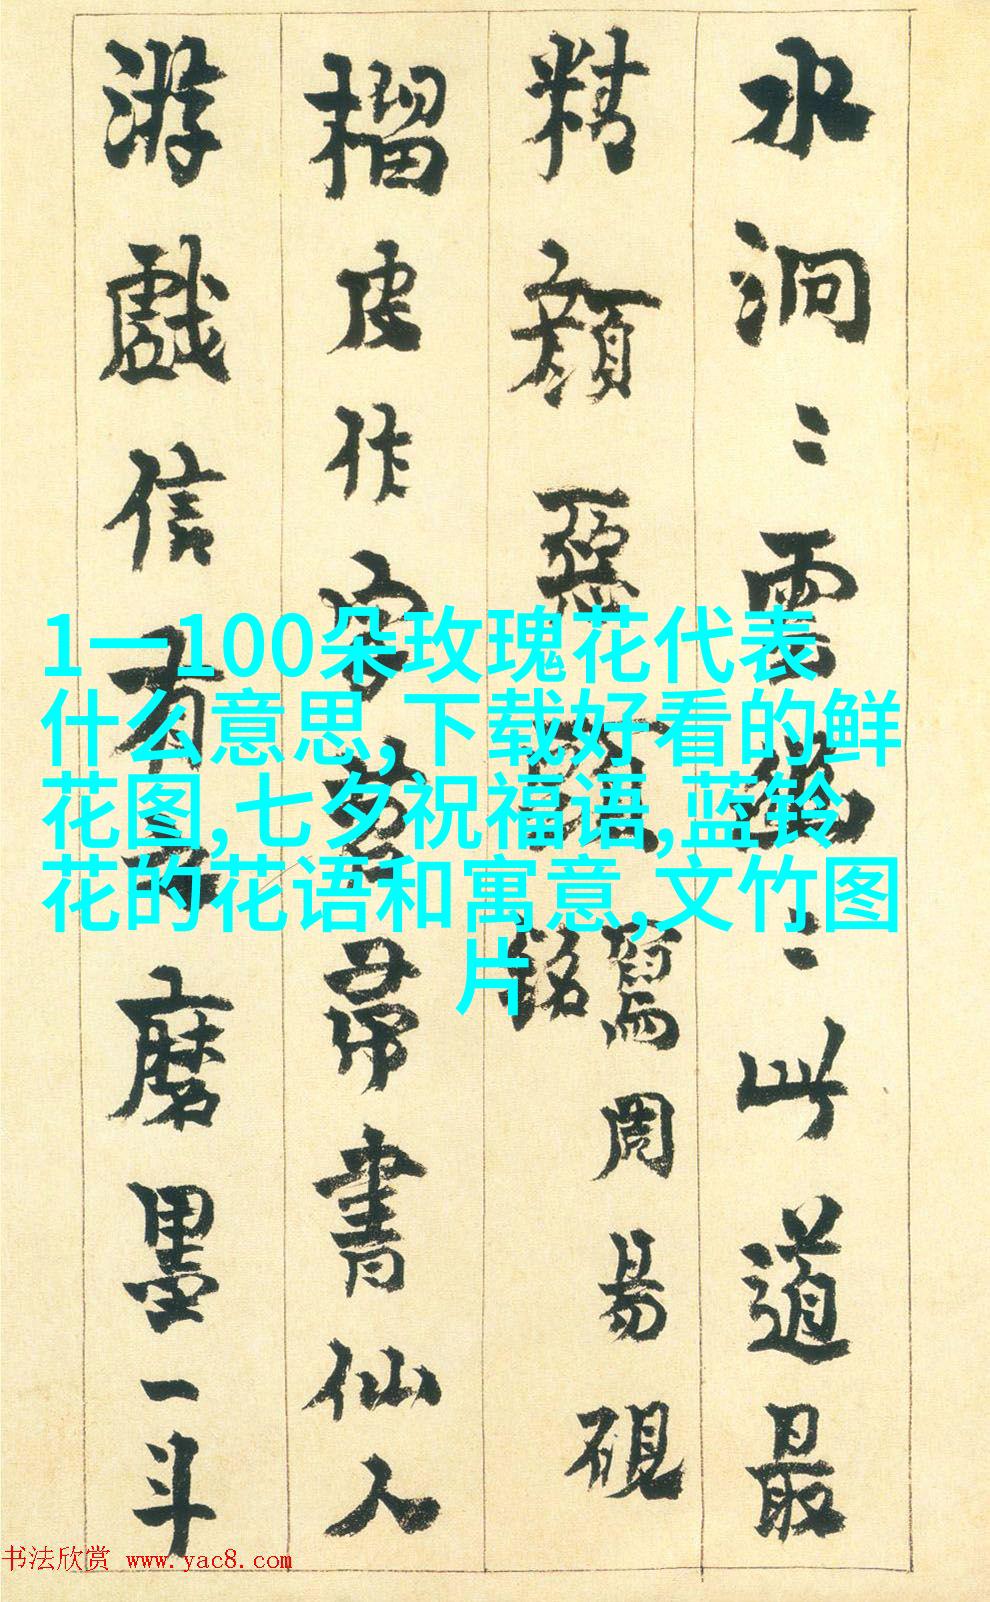 水洞〻雲〻此道最
精顏惡
周易硯
銘
榴皮作字苕帚書仙人
游戲信有之磨墨一斗
1—100朵玫瑰花代表
什么意思,下载好看的鲜
花图,七夕祝福语,蓝铃
花的花语和寓意,文竹图
片
书法欣赏 www.yac8.com